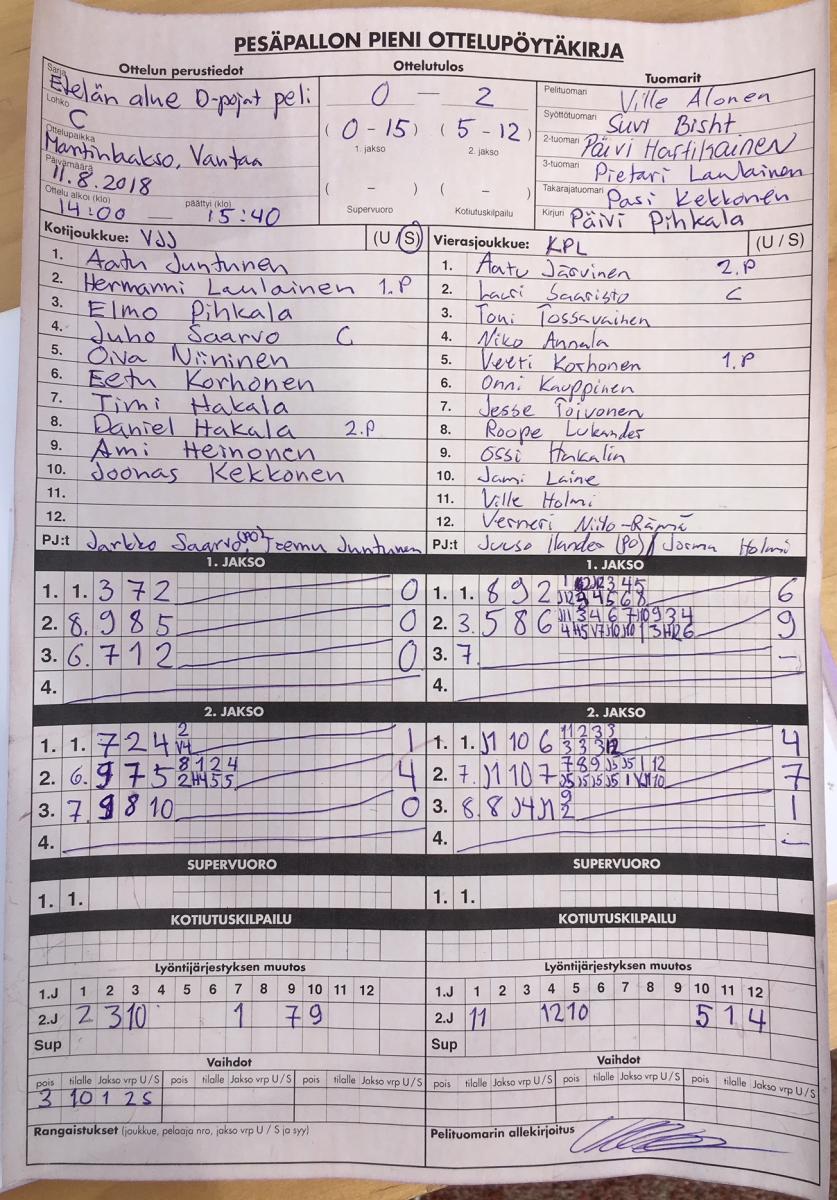 PESÄPALLON PIENI OTTELUPÖYTÄKIRJA
Ottelun perustiedot
Sarja Etelän alue D-pojat peli
Lohko C
Ottelupaikka Martinlaakso, Vantaa
Päivämäärä 11.8.2018
Ottelu alkoi (klo) 14:00 — päättyi (klo) 15:40
Ottelutulos
0 — 2
(0-15) (5-12)
1. jakso 2. jakso
( - ) ( - )
Supervuoro Kotiutuskilpailu
Tuomarit
Pelituomari Ville Alonen
Syöttötuomari Suvi Bisht
2-tuomari Päivi Hartikainen
3-tuomari Pietari Laulainen
Takarajatuomari Pasi Kekkonen
Kirjuri Päivi Pihkala
Kotijoukkue: VJS (U / S)
1. Aatu Juntunen
2. Hermanni Laulainen 1.P
3. Elmo Pihkala
4. Juho Saarvo C
5. Oiva Niininen
6. Eetu Korhonen
7. Timi Hakala
8. Daniel Hakala 2.P
9. Ami Heinonen
10. Joonas Kekkonen
11.
12.
PJ:t Jarkko Saarvo (PO), Teemu Juntunen
Vierasjoukkue: KPL (U / S)
1. Aatu Järvinen 2.P
2. Lauri Saaristo C
3. Toni Tossavainen
4. Niko Annala
5. Veeti Korhonen 1.P
6. Onni Kauppinen
7. Jesse Toivonen
8. Roope Lukander
9. Ossi Hakalin
10. Jami Laine
11. Ville Holmi
12. Verneri Niito-Rämä
PJ:t Juuso Ilander (PO) / Jorma Holmi
1. JAKSO
1. 1. 3 7 2 0
2. 8. 9 8 5 0
3. 6. 7 1 2 0
4.
1. JAKSO
1. 1. 8 9 2 6
2. 3. 5 8 6 9
3. 7. -
4.
2. JAKSO
1. 1. 7 2 4 2 V4 1
2. 6. 9 7 5 8 1 2 4 2 H4 5 5 4
3. 7. 9 8 10 0
4.
2. JAKSO
1. 1. J1 10 6 11 2 3 3 3 3 3 12 4
2. 7. J1 10 7 7
3. 8. 8 J4 J1 9 2 1
4. -
SUPERVUORO
1. 1.
SUPERVUORO
1. 1.
KOTIUTUSKILPAILU
KOTIUTUSKILPAILU
Lyöntijärjestyksen muutos
1.J 1 2 3 4 5 6 7 8 9 10 11 12
2.J 2 3 10 1 7 9
Sup
Lyöntijärjestyksen muutos
1.J 1 2 3 4 5 6 7 8 9 10 11 12
2.J 11 12 10 5 1 4
Sup
Vaihdot
pois tilalle Jakso vrp U / S pois tilalle Jakso vrp U / S pois tilalle Jakso vrp U / S
3 10 1 2S
Vaihdot
pois tilalle Jakso vrp U / S pois tilalle Jakso vrp U / S pois tilalle Jakso vrp U / S
Rangaistukset (joukkue, pelaaja nro, jakso vrp U / S ja syy)
Pelituomarin allekirjoitus